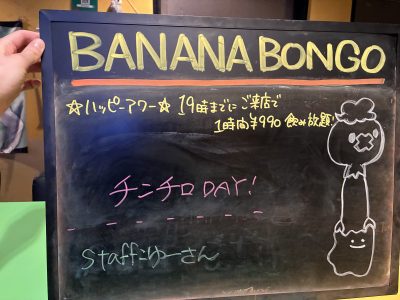 BANANA BONGO
☆ハッピーアワー☆ 19時までにご来店で
1時間¥990 飲み放題!
チンチロDAY!
Staff:ゆーさん